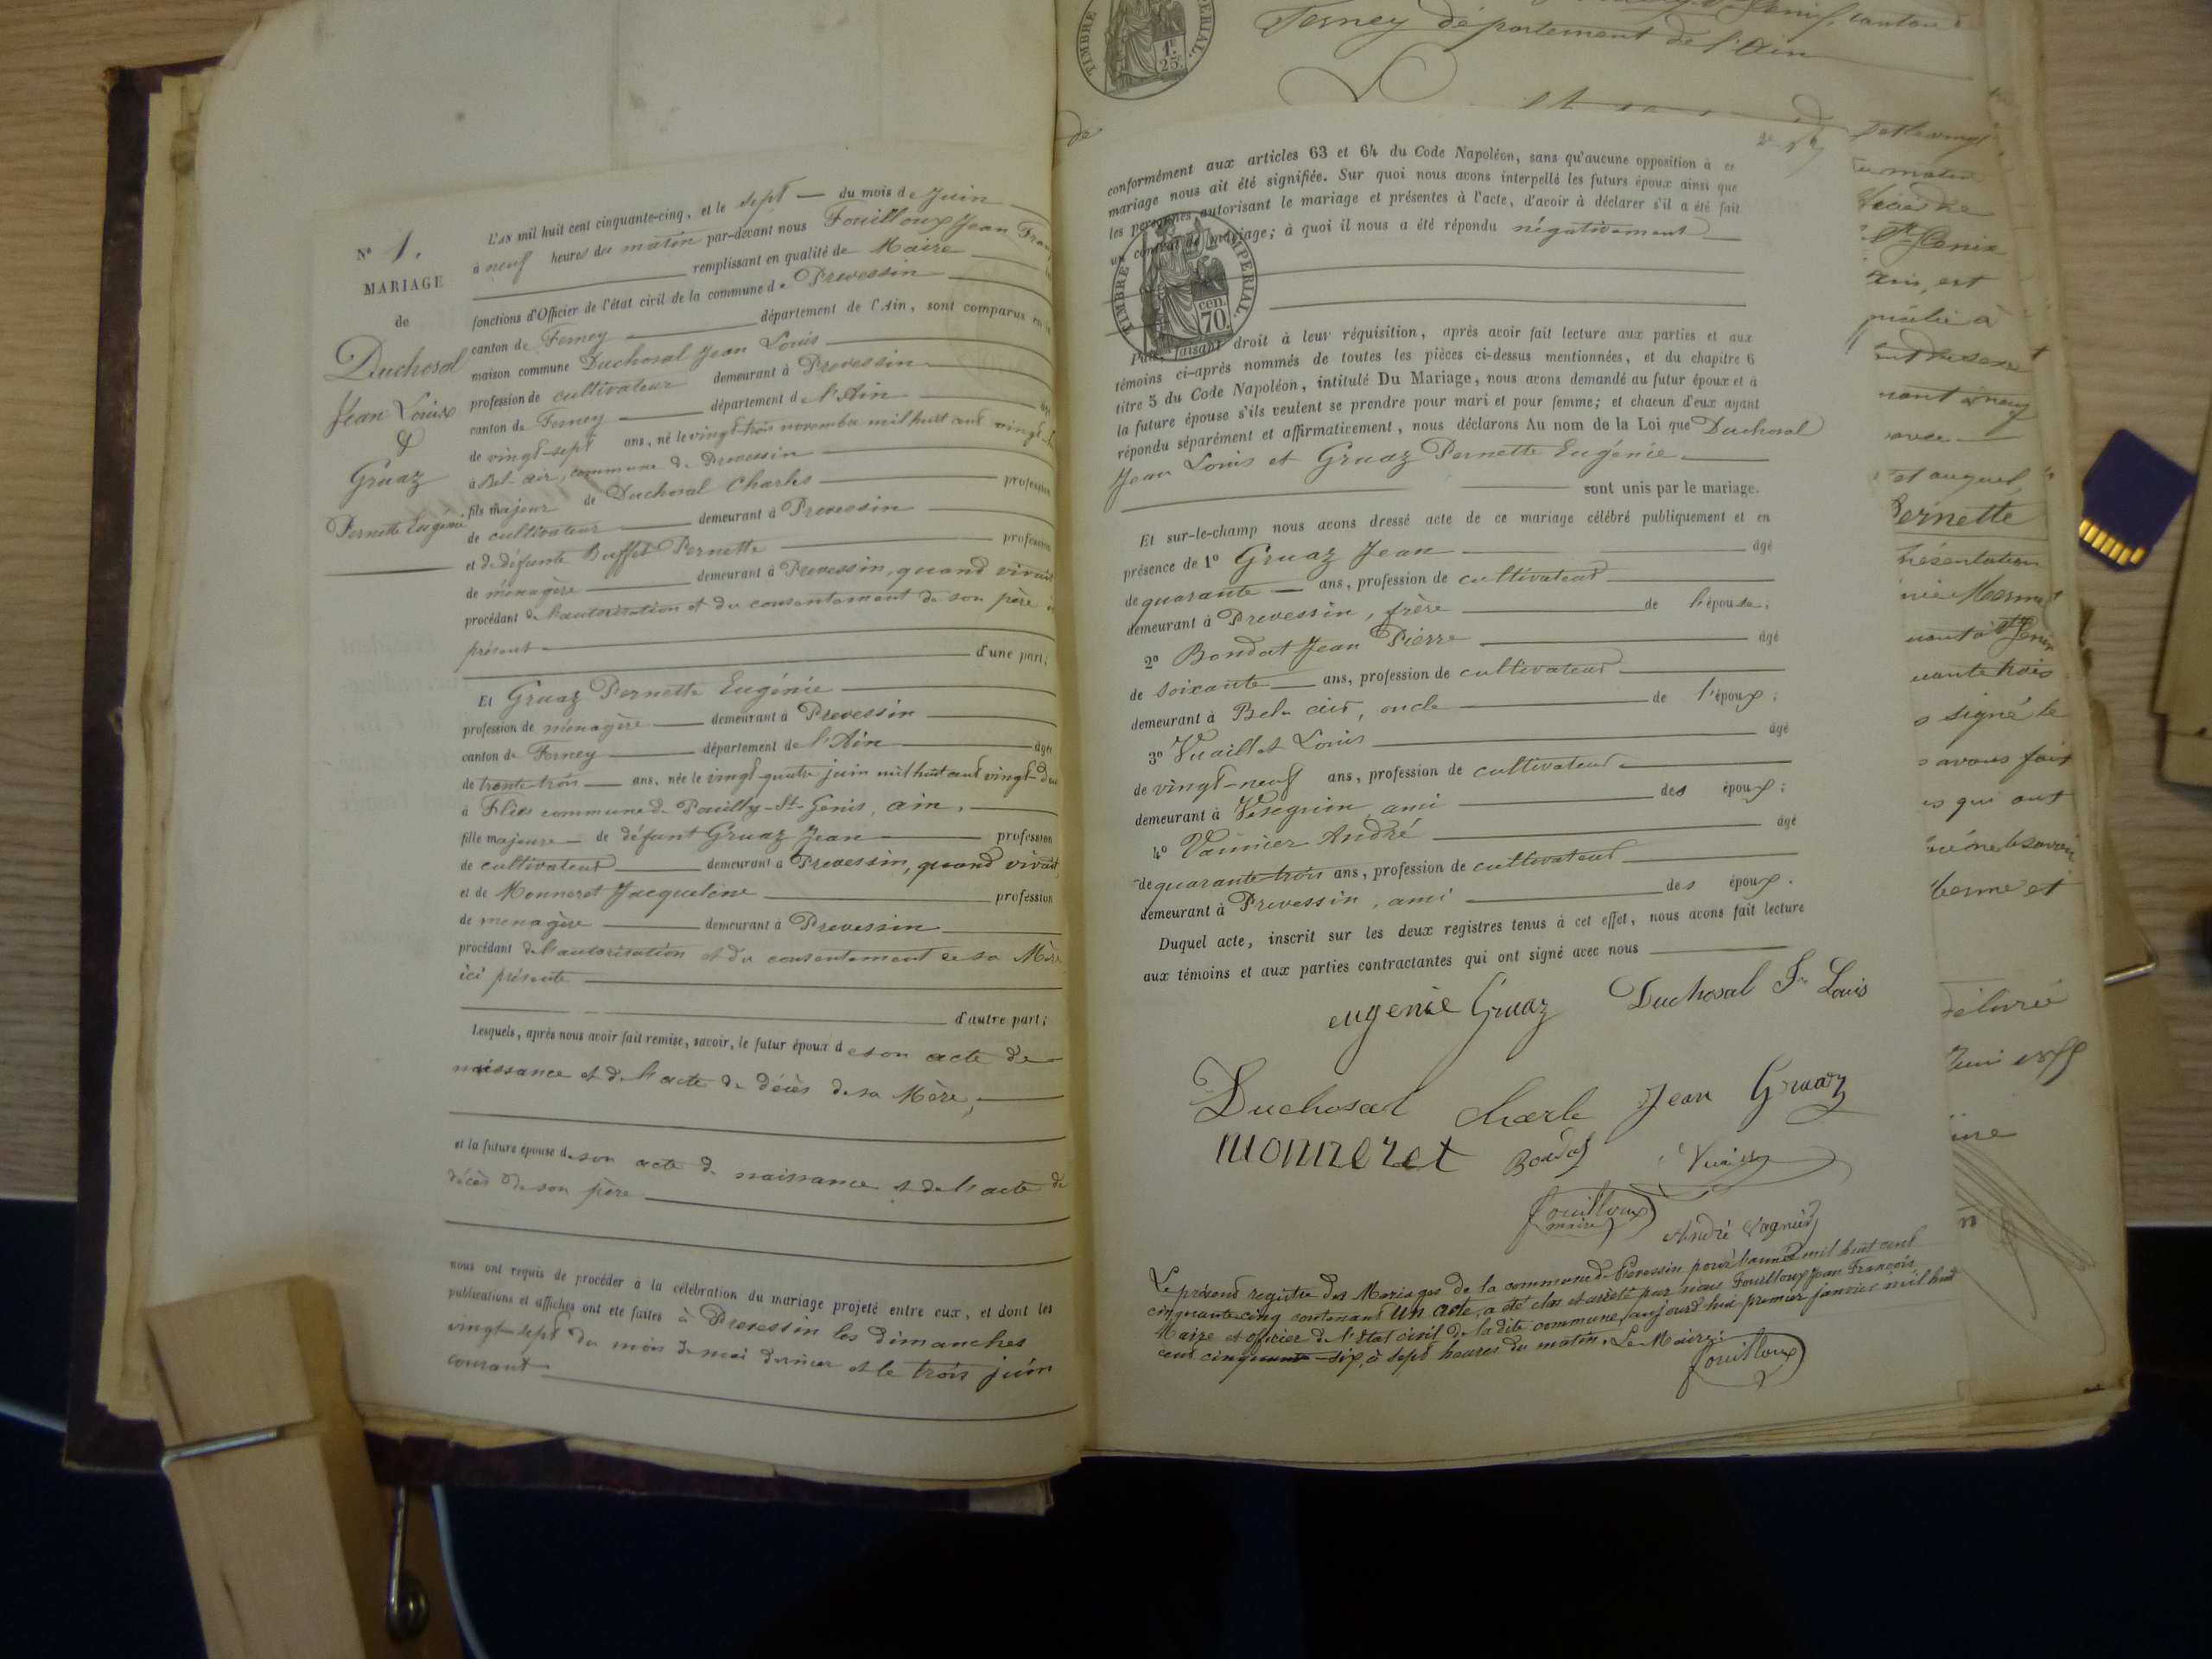 N° 1.
MARIAGE
de
Duchosal
Jean Louis
&
Gruaz
Pernette Eugénie
L'AN mil huit cent cinquante-cinq, et le sept du mois de Juin
à neuf heures du matin par-devant nous Fouilloux Jean
remplissant en qualité de Maire
fonctions d'Officier de l'état civil de la commune de Prevessin
canton de Ferney département de l'Ain, sont comparus en
maison commune Duchosal Jean Louis
profession de cultivateur demeurant à Prevessin
canton de Ferney département de l'Ain
de vingt-sept ans, né le vingt-trois novembre mil huit cent vingt
à Bel-air, commune de Prevessin
fils majeur de Duchosal Charles profession
de cultivateur demeurant à Prevessin
et de défunte Buffet Pernette profession
de ménagère demeurant à Prevessin, quand vivait
procédant de l'autorisation et du consentement de son père
présent d'une part;
Et Gruaz Pernette Eugénie
profession de ménagère demeurant à Prevessin
canton de Ferney département de l'Ain âgée
de trente-trois ans, née le vingt-quatre juin mil huit cent vingt-deux
à Flies commune de Pouilly-St-Genis, ain,
fille majeure de défunt Gruaz Jean profession
de cultivateur demeurant à Prevessin, quand vivait
et de Monneret Jacqueline profession
de menagère demeurant à Prevessin
procédant de l'autorisation et du consentement de sa Mère
ici présente
d'autre part;
Lesquels, après nous avoir fait remise, savoir, le futur époux de son acte de
naissance et de l'acte de décès de sa Mère,
et la future épouse de son acte de naissance et de l'acte de
décès de son père
nous ont requis de procéder à la célébration du mariage projeté entre eux, et dont les
publications et affiches ont été faites à Prevessin les dimanches
vingt-sept du mois de mai dernier et le trois juin
courant
TIMBRE IMPERIAL.
1F. 25c.
Ferney département de l'Ain
conformément aux articles 63 et 64 du Code Napoléon, sans qu'aucune opposition à ce
mariage nous ait été signifiée. Sur quoi nous avons interpellé les futurs époux ainsi que
les personnes autorisant le mariage et présentes à l'acte, d'avoir à déclarer s'il a été fait
un contrat de mariage; à quoi il nous a été répondu négativement
TIMBRE IMPERIAL.
cen. 70.
Puis, faisant droit à leur réquisition, après avoir fait lecture aux parties et aux
témoins ci-après nommés de toutes les pièces ci-dessus mentionnées, et du chapitre 6
titre 5 du Code Napoléon, intitulé Du Mariage, nous avons demandé au futur époux et à
la future épouse s'ils veulent se prendre pour mari et pour femme; et chacun d'eux ayant
répondu séparément et affirmativement, nous déclarons Au nom de la Loi que Duchosal
Jean Louis et Gruaz Pernette Eugénie
sont unis par le mariage.
Et sur-le-champ nous avons dressé acte de ce mariage célébré publiquement et en
présence de 1° Gruaz Jean âgé
de quarante ans, profession de cultivateur
demeurant à Prevessin, frère de l'épouse.
2° Bondat Jean Pierre âgé
de soixante ans, profession de cultivateur
demeurant à Bel-air, oncle de l'époux;
3° Vuaillet Louis âgé
de vingt-neuf ans, profession de cultivateur
demeurant à Vesegnin, ami des époux;
4° Vaunier André âgé
de quarante-trois ans, profession de cultivateur
demeurant à Prevessin, ami des époux.
Duquel acte, inscrit sur les deux registres tenus à cet effet, nous avons fait lecture
aux témoins et aux parties contractantes qui ont signé avec nous
eugenie Gruaz Duchosal Jn Louis
Duchosal charle Jean Gruaz
monneret Bondat
Fouilloux
maire
André Vagnier
Le présent registre des Mariages de la commune de Prevessin pour l'année mil huit cent
cinquante-cinq contenant un acte, a été clos et arrêté par nous Fouilloux Jean François
Maire et officier de l'état civil de la dite commune, aujourd'hui premier janvier mil huit
cent cinquante-six, à sept heures du matin. Le Maire:
Fouilloux
St Genix
et auquel
Pernette
signé le
avons fait
qui ont
délivré
Juin 1855